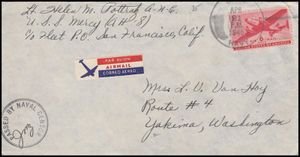 Lt. Helen M. Pottraf A.N.C.
U.S.S. Mercy (AH-8)
c/o Fleet P.O. San Francisco, Calif.
APR
PAR AVION
AIRMAIL
CORREO AEREO
6
Miss L. V. Van Hoy
Route #4
Yakima, Washington
PASSED BY NAVAL CENSOR